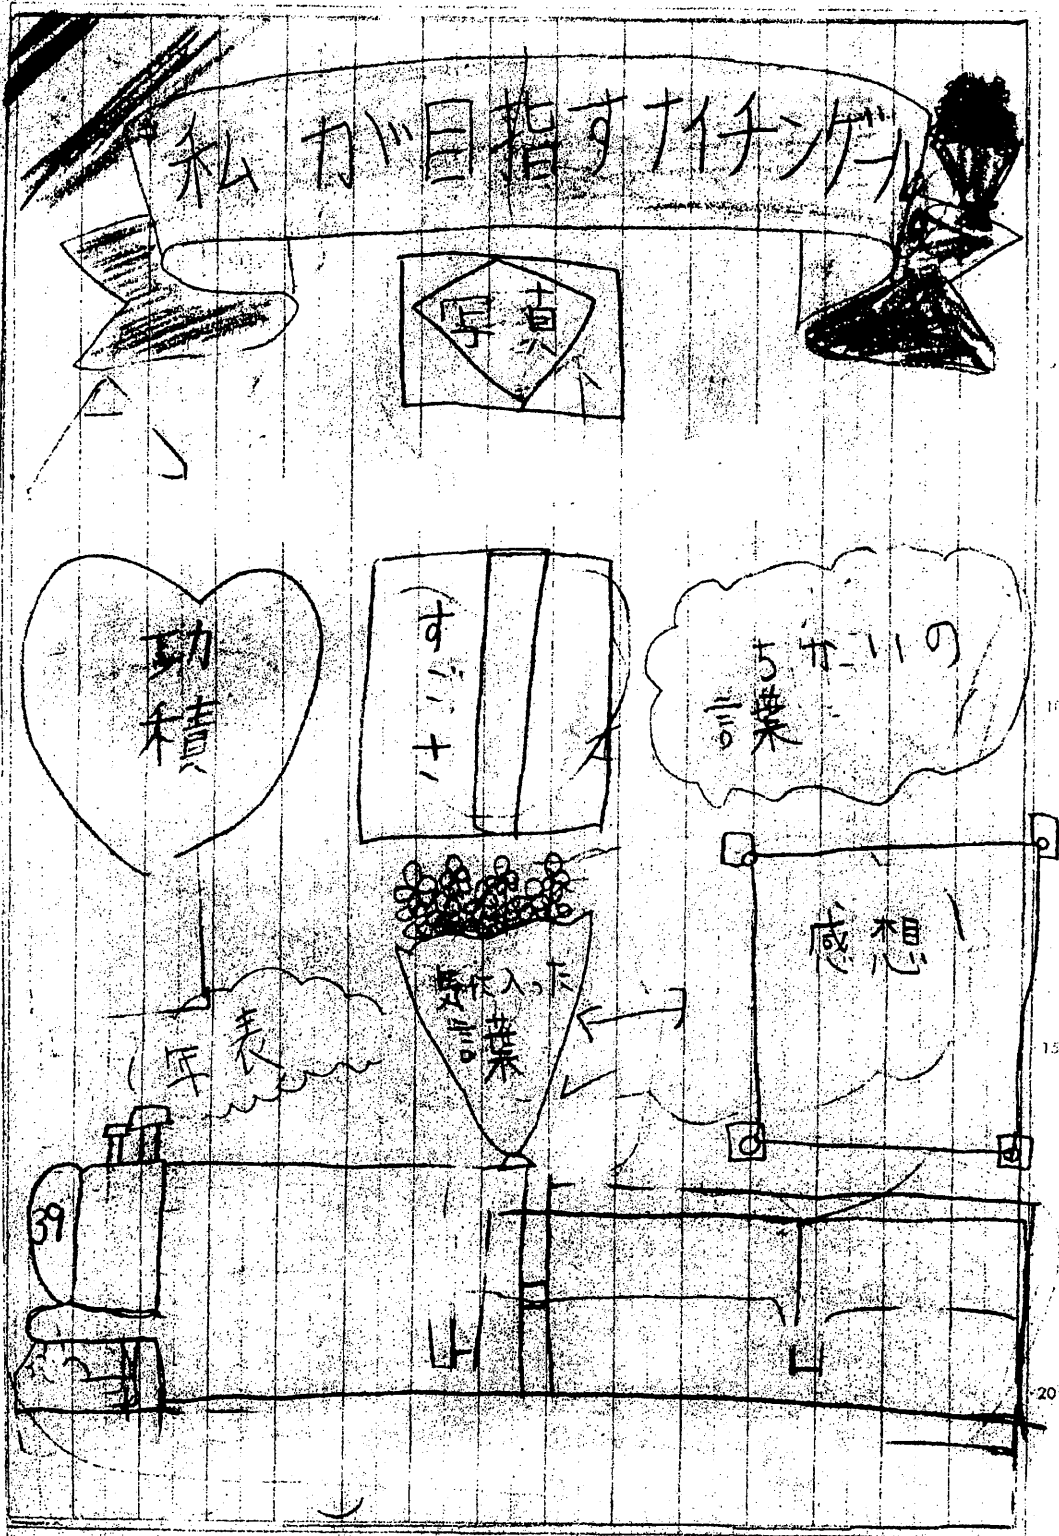 私が目指すナイチンゲール
写真
功
積
すごさ
ちかいの
言葉
感想
気に入った
言葉
年表
39
15
20